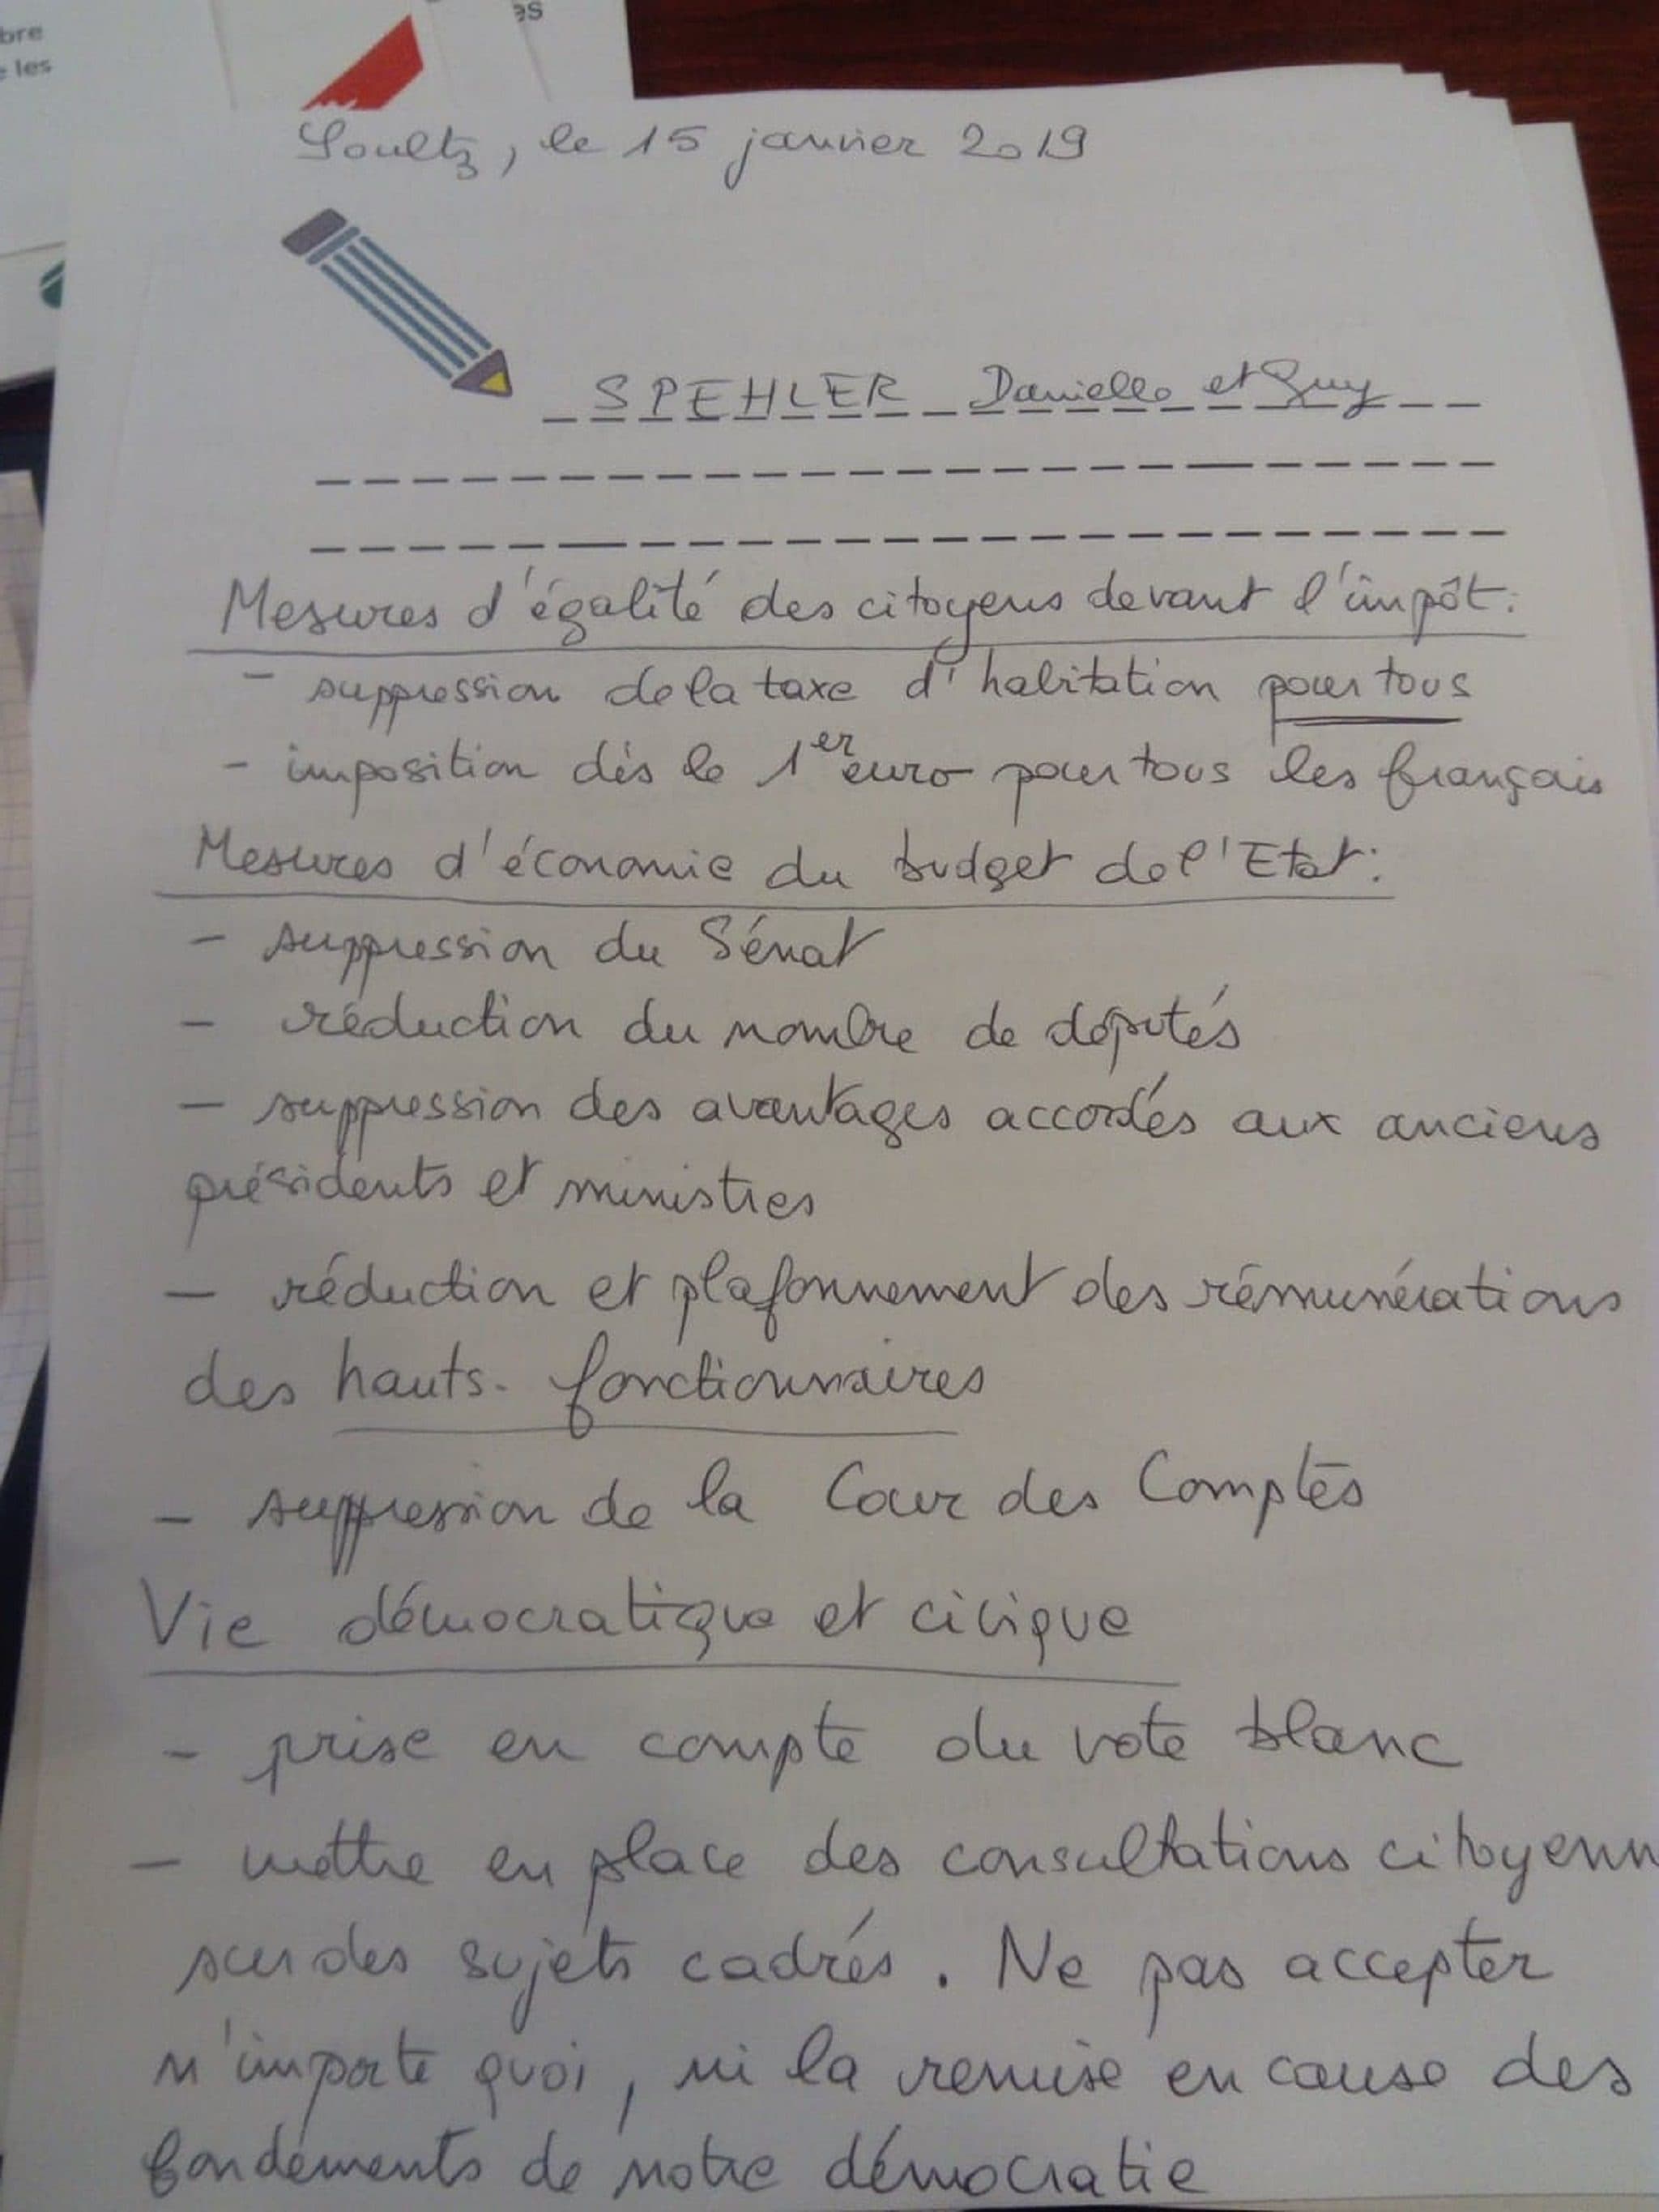 bre
e les
es
Soultz, le 15 janvier 2019
SPEHLER Danielle et Guy
Mesures d'égalité des citoyens devant l'impôt:
- suppression de la taxe d'habitation pour tous
- imposition dès le 1er euro pour tous les français
Mesures d'économie du budget de l'Etat:
- suppression du Sénat
- réduction du nombre de députés
- suppression des avantages accordés aux anciens
présidents et ministres
- réduction et plafonnement des rémunérations
des hauts-fonctionnaires
- suppression de la Cour des Comptes
Vie démocratique et civique
- prise en compte du vote blanc
- mettre en place des consultations citoyenn
sur des sujets cadrés. Ne pas accepter
n'importe quoi, ni la remise en cause des
fondements de notre démocratie